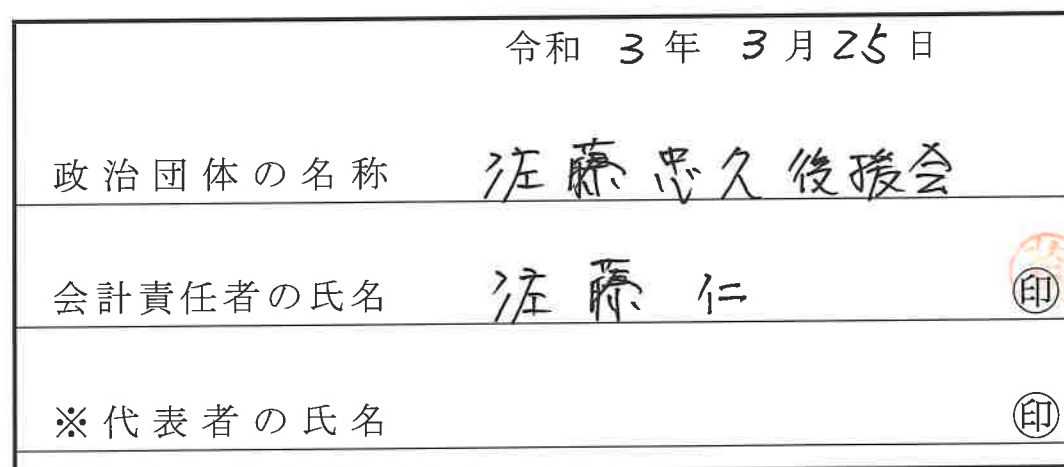 令和 3 年 3 月 25 日
政治団体の名称 佐藤忠久後援会
会計責任者の氏名 佐藤 仁 ㊞
※代表者の氏名 ㊞